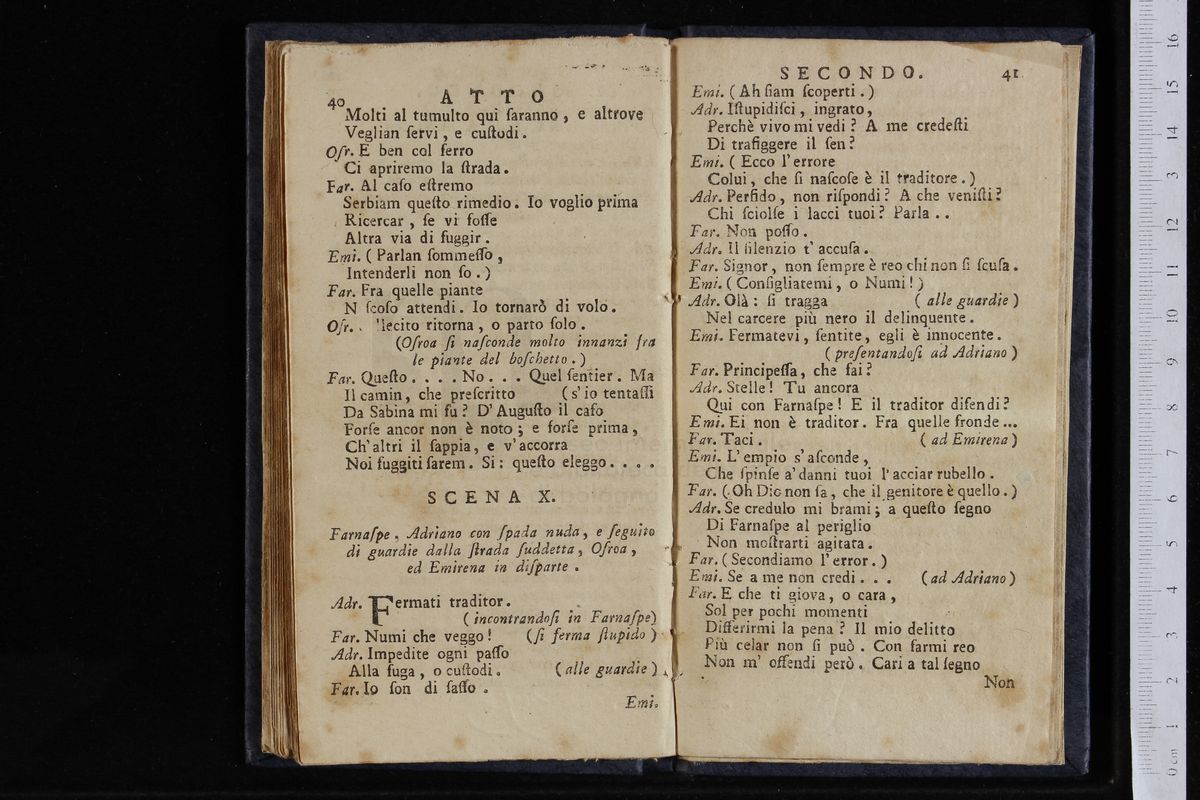 40 ATTO
Molti al tumulto qui ſaranno, e altrove
Veglian ſervi, e cuſtodi.
Oſr. E ben col ferro
Ci apriremo la ſtrada.
Far. Al caſo eſtremo
Serbiam queſto rimedio. Io voglio prima
Ricercar, ſe vi foſſe
Altra via di fuggir.
Emi. (Parlan ſommeſſo,
Intenderli non ſo.)
Far. Fra quelle piante
N ſcoſo attendi. Io tornarò di volo.
Oſr. llecito ritorna, o parto ſolo.
(Oſroa ſi naſconde molto innanzi fra
le piante del boſchetto.)
Far. Queſto.... No... Quel ſentier. Ma
Il camin, che preſcritto (s'io tentaſſi
Da Sabina mi fu? D'Auguſto il caſo
Forſe ancor non è noto; e forſe prima,
Ch'altri il ſappia, e v'accorra
Noi fuggiti ſarem. Si: queſto eleggo....
SCENA X.
Farnaſpe, Adriano con ſpada nuda, e ſeguito
di guardie dalla ſtrada ſuddetta, Oſroa,
ed Emirena in diſparte.
Adr. Fermati traditor.
(incontrandoſi in Farnaſpe)
Far. Numi che veggo! (ſi ferma ſtupido)
Adr. Impedite ogni paſſo
Alla fuga, o cuſtodi. (alle guardie)
Far. Io ſon di ſaſſo.
Emi.
SECONDO. 41
Emi. (Ah ſiam ſcoperti.)
Adr. Iſtupidiſci, ingrato,
Perchè vivo mi vedi? A me credeſti
Di trafiggere il ſen?
Emi. (Ecco l'errore
Colui, che ſi naſcoſe è il traditore.)
Adr. Perfido, non riſpondi? A che veniſti?
Chi ſciolſe i lacci tuoi? Parla..
Far. Non poſſo.
Adr. Il ſilenzio t'accuſa.
Far. Signor, non ſempre è reo chi non ſi ſcuſa.
Emi. (Conſigliatemi, o Numi!)
Adr. Olà: ſi tragga (alle guardie)
Nel carcere più nero il delinquente.
Emi. Fermatevi, ſentite, egli è innocente.
(preſentandoſi ad Adriano)
Far. Principeſſa, che fai?
Adr. Stelle! Tu ancora
Qui con Farnaſpe! E il traditor difendi?
Emi. Ei non è traditor. Fra quelle fronde...
Far. Taci. (ad Emirena)
Emi. L'empio s'aſconde,
Che ſpinſe a'danni tuoi l'acciar rubello.
Far. (Oh Dio non ſa, che il genitore è quello.)
Adr. Se credulo mi brami; a queſto ſegno
Di Farnaſpe al periglio
Non moſtrarti agitata.
Far. (Secondiamo l'error.)
Emi. Se a me non credi... (ad Adriano)
Far. E che ti giova, o cara,
Sol per pochi momenti
Differirmi la pena? Il mio delitto
Più celar non ſi può. Con farmi reo
Non m'offendi però. Cari a tal ſegno
Non